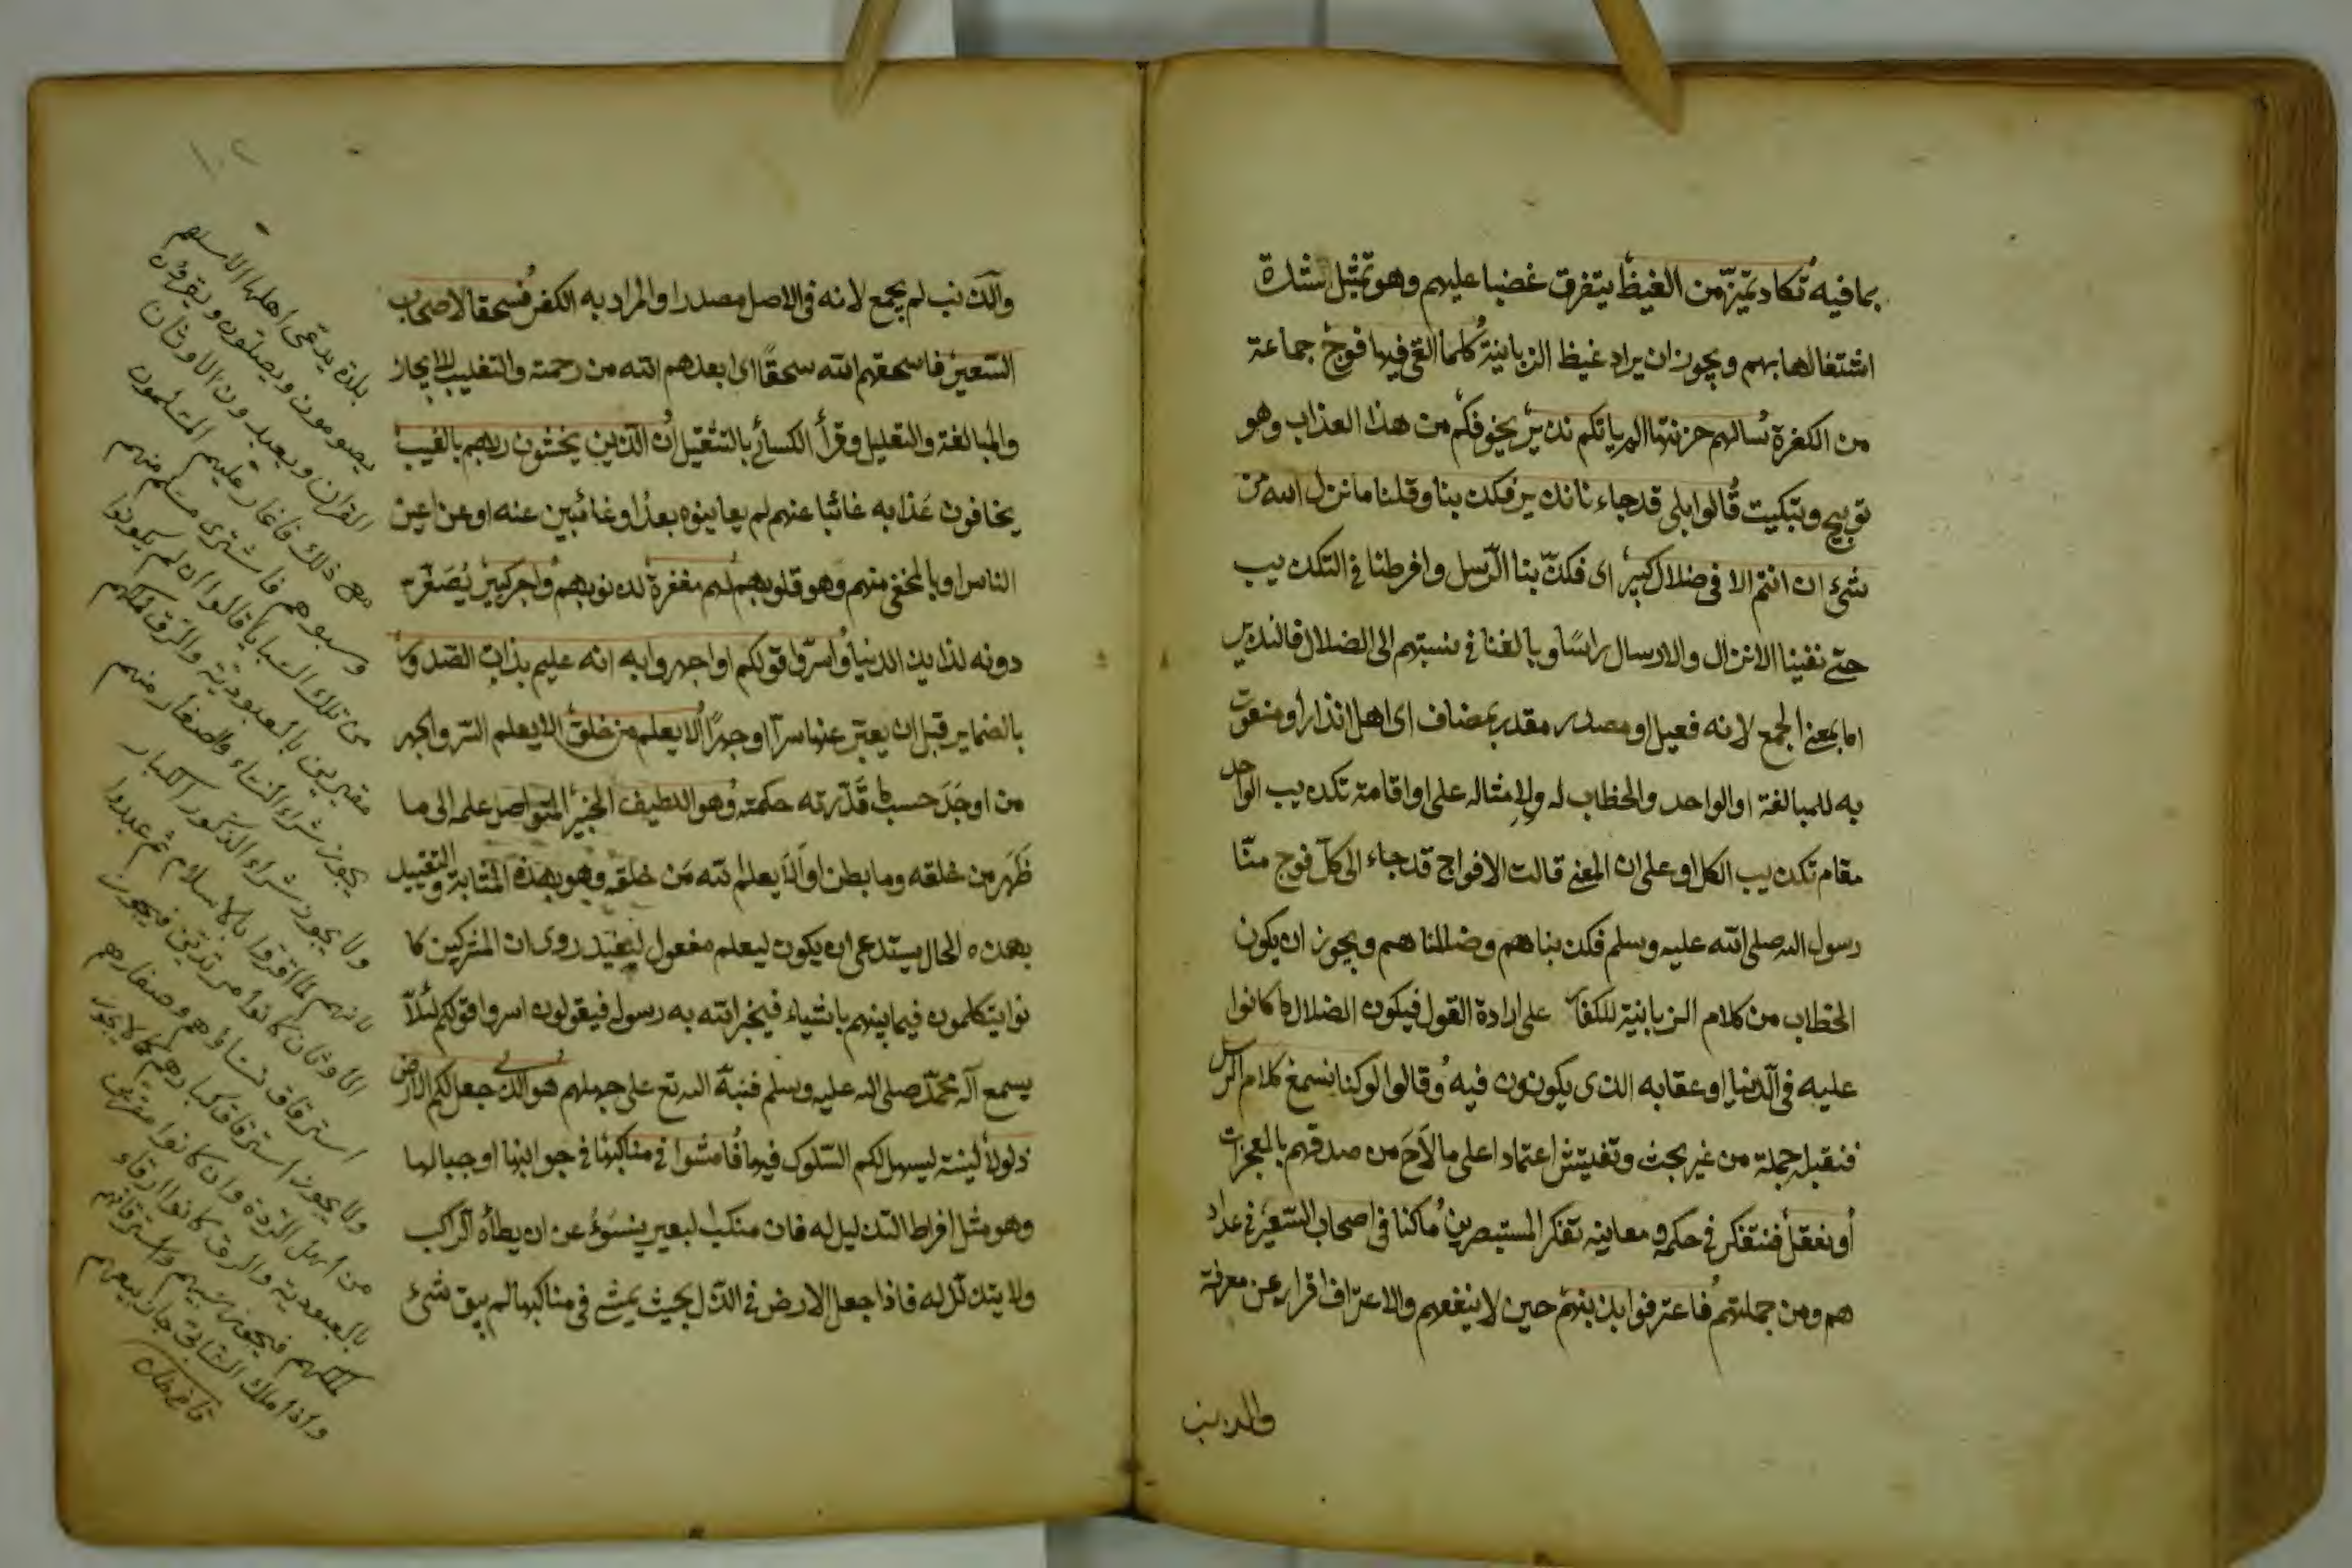 بما فيه تكاد تميّز من الغيظ يتفرق غضبا عليهم وهو تمثيل لشدة
اشتغالها بهم ويجوز ان يراد غيظ الزبانية كلما القى فيها فوج جماعة
من الكفرة سالهم خزنتها الم ياتكم نذير يخوفكم من هذا العذاب وهو
توبيخ وتبكيت قالوا بلى قد جاءنا نذير فكذبنا وقلنا ما نزل الله من
شئ ان انتم الا فى ضلال كبير اى فكذّبنا الرّسل وافرطنا فى التكذيب
حتى نفينا الانزال والارسال راسًا وبالغنا فى نسبتهم الى الضلال فالنذير
اما بمعنى الجمع لانه فعيل او مصدر مقدر بمضاف اى اهل انذار او منعوت
به للمبالغة او الواحد والخطاب له ولامثاله على او اقامة تكذيب الواحد
مقام تكذيب الكل او على ان المعنى قالت الافواج قد جاء الى كلّ فوج منّا
رسول الله صلى الله عليه وسلم فكذبناهم وضللناهم ويجوز ان يكون
الخطاب من كلام الزبانية للكفار على ارادة القول فيكون الضلال ما كانوا
عليه فى الدنيا او عقابه الذى يكونون فيه وقالوا لو كنا نسمع كلام الرسل
فنقبله جملة من غير بحث وتفتيش اعتمادا على ما لاح من صدقهم بالمعجزات
أو نعقل فنتفكر فى حكمه ومعانيه تفكر المستبصرين ما كنا فى اصحاب السّعير فى عداد
هم ومن جملتهم فاعترفوا بذنبهم حين لا ينفعهم والاعتراف اقرار عن معرفة
والذنب
١٠٢
والذنب لم يجمع لانه فى الاصل مصدر او المراد به الكفر فسحقا لاصحاب
السّعير فاسحقهم الله سحقًا اى ابعدهم الله من رحمته والتغليب للايجاز
والمبالغة والتعليل وقرأ الكسائى بالتثقيل ان الذين يخشون ربهم بالغيب
يخافون عذابه غائبا عنهم لم يعاينوه بعد او غائبين عنه او عن اعين
الناس او بالمخفى منهم وهو قلوبهم لهم مغفرة لذنوبهم واجر كبير يُصَغَّر
دونه لذايذ الدنيا واسرّوا قولكم او اجهروا به انه عليم بذات الصّدور
بالضماير قبل ان يعبّر عنها سرّا او جهرًا ألا يعلم من خلق الا يعلم السّر والجهر
من اوجَدَ حسب ما قَدَّرته حكمته وهو اللطيف الخبير المتواصل علمه الى ما
ظَهَر من خلقه وما بطن او ألا يعلم الله مَن خلقه وهو بهذه المثابة والتقييد
بهذه الحال يستدعى ان يكون ليعلم مفعول ليفيد روى ان المشركين كا
نوا يتكلمون فيما بينهم باشياء فيخبر الله به رسوله فيقولون اسروا قولكم لئلّا
يسمع آله محمّد صلى الله عليه وسلم فنبّه الله تع على جهلهم هو الذى جعل لكم الارض
ذلولا لينة ليسهل لكم السّلوك فيها فامشوا فى مناكبها فى جوانبها او جبالها
وهو مثل لفرط التذليل له فان منكب البعير ينسوء عن ان يطأه الراكب
ولا يتذلّل له فاذا جعل الارض فى الذّل بحيث يمشى فى مناكبها لم يبق شئ
بلدة يدعى اهلها الاسلام
يصومون ويصلون ويقرؤن
القرآن ويعبدون الاوثان
مع ذلك فاغار عليهم المسلمون
وسبوهم فاشترى مسلم منهم
من تلك السبايا قالوا ان لم يكونوا
مقرين بالعبودية والرق لملكهم
يجوز شراء النساء والصغار منهم
ولا يجوز شراء الذكور الكبار
لانهم لما اقروا بالاسلام ثم عبدوا
الاوثان كانوا مرتدين فيجوز
استرقاق نسائهم وصغارهم
ولا يجوز استرقاق كبارهم كما لا يجوز
من اهل الردة وان كانوا مقرين
بالعبودية والرق كانوا ارقاء
لملكهم فيجوز سبيهم واسترقاقهم
واذا ملك السابى جاز بيعهم
قاضى خان